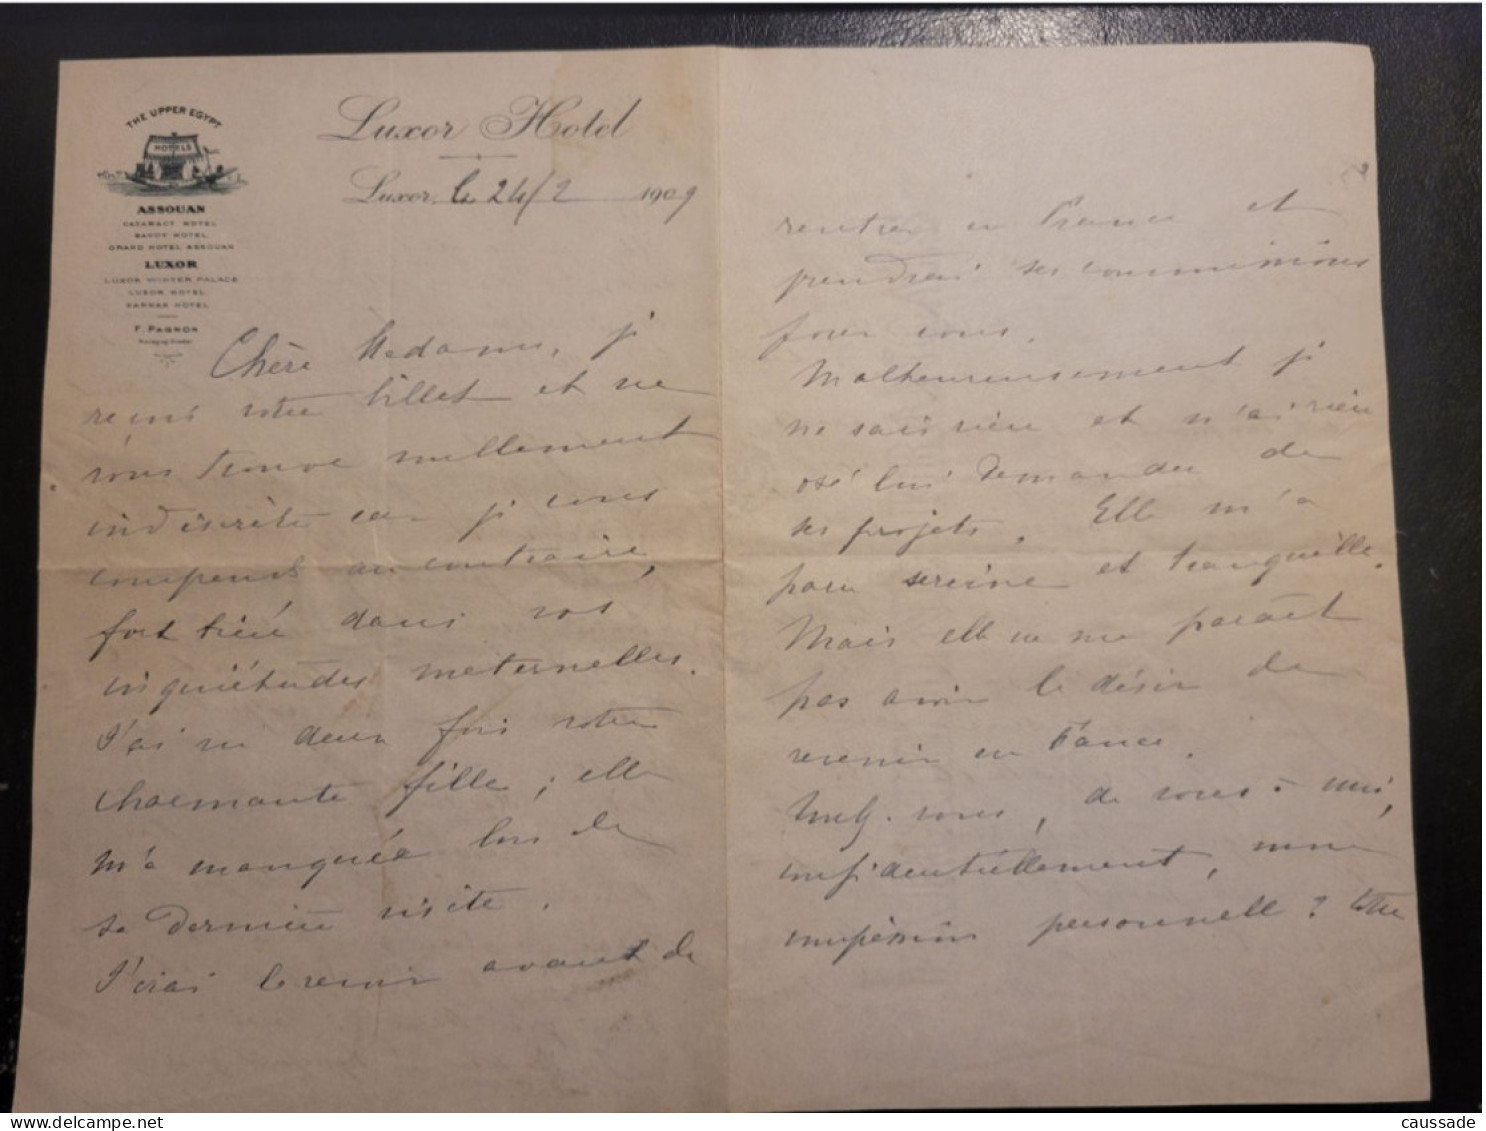 THE UPPER EGYPT
HOTELS
ASSOUAN
CATARACT HOTEL
SAVOY HOTEL
GRAND HOTEL ASSOUAN
LUXOR
LUXOR WINTER PALACE
LUXOR HOTEL
KARNAK HOTEL
F. PAGNON
Luxor Hotel
Luxor, le 24/2 1909
Chère Madame, je
reçois votre billet et ne
vous trouve nullement
indiscrète car je vous
comprends au contraire,
fort bien dans vos
inquiétudes maternelles.
J'ai vu deux fois votre
charmante fille ; elle
m'a manquée lors de
sa dernière visite.
J'irai la revoir avant de
2
rentrer en France et
prendrai ses commissions
pour vous.
Malheureusement je
ne sais rien et n'ai rien
osé lui demander de
ses projets. Elle m'a
paru sereine et tranquille.
Mais elle ne me paraît
pas avoir le désir de
revenir en France.
de vous à moi,
confidentiellement, mon
impression personnelle ? Votre
caussade